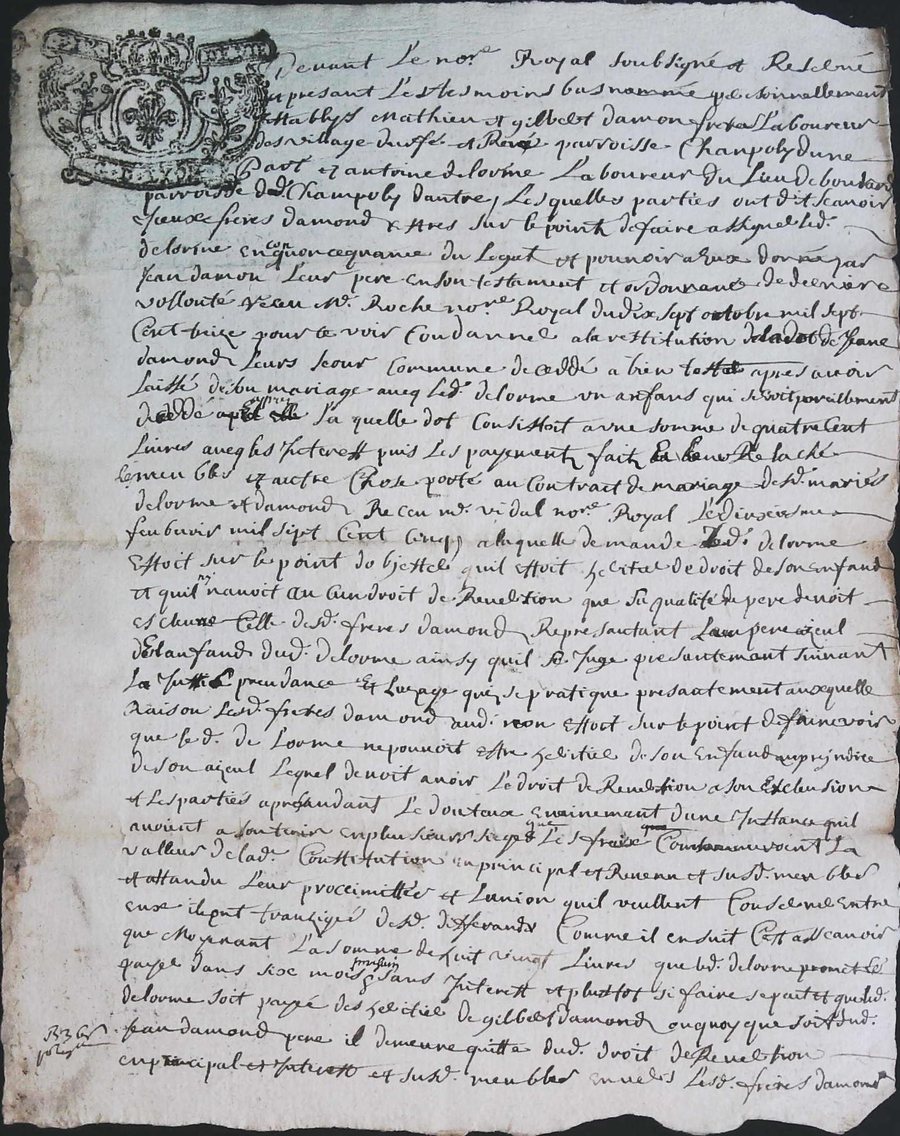 Devant Le no.re Royal soubsigné et Reservé
en presant Les tesmoins bas nommé personnellement
Establys Mathieu et gilbert damon freres Laboureur
des village duffé et parroisse Champoly dune
Part et antoine delorme Laboureur du Lieu de
parroisse dud. Champoly dautre, Lesquelles parties ont dit scavoir
Iceux freres damond Estres sur le point de faire assigner led.
delorme en consequance du Legat et pouvoir a Eux donné par
Jean damon Leur pere en son testement et ordonnance de derniere
vollonté receu Me. Roche no.re Royal du dix sept octobre mil sept
Cent treize pour se voir Condannel a la restitution de la dot de Jeane
damond Leurs seour Commune decedé a bien apres avoir
Laissé de sou mariage aveq led. delorme un anfans qui seroit pareillement
decedé La quelle dot Consistoit a une somme de quatre Cent
Livres aveq les Interest puis Les payement fait Relaché
le meubles et autre Chose porté au Contrait de mariage desd. mariés
delorme et damond Receu me. vidal no.re Royal Le dixseisme
feubvrir mil sept Cent cinq a laquelle demande Led. delorme
Estoit sur le point dobjecter quil estoit heritiel de droit de son enfand
et quil ny navoit au Cun droit de Revelsion que sa qualité de pere devoit
esclure Celle desd. freres damond Represantant Leur pere ayeul
de Lanfand dud. delorme ainsy quil se Juge presantement suivant
La Jurisprudance et Luzage que se pratique presantement auxquelle
Raison Lesd. freres damond aud. non estoit sur le point de faire voir
que led. de Lorme ne pouvoit estre heritiel de son Enfand au prejudice
de son ayeul Lequel devoit avoir Le droit de Revelsion a son Exclusion
et Les partiés aprehandant Le douteux Evainement dune Instance quil
avoient a soutenir en plusieurs sieges que Les fraix Consommeroint La
valleur de lad. Constitution en principal et Revenu et susd. meubles
et attandu Leur proccimittés et Lunion quil veullent Conselve Entre
eux ilont tranzigés desd. diferands Comme il en suit Cest asscavoir
que Moyenant La somme de huit vingt Livres que led. delorme promet
payel dans sixe mois prochain sans Interest et plustot si faire se pait et que led.
delorme soit payé des heritiel de gilbert damond ou quoy que soit dud.
Jean damond pere il demeure quitte dud. droit de Revelsion
en principal et Interest et susd. meubles envels Lesd. freres damond